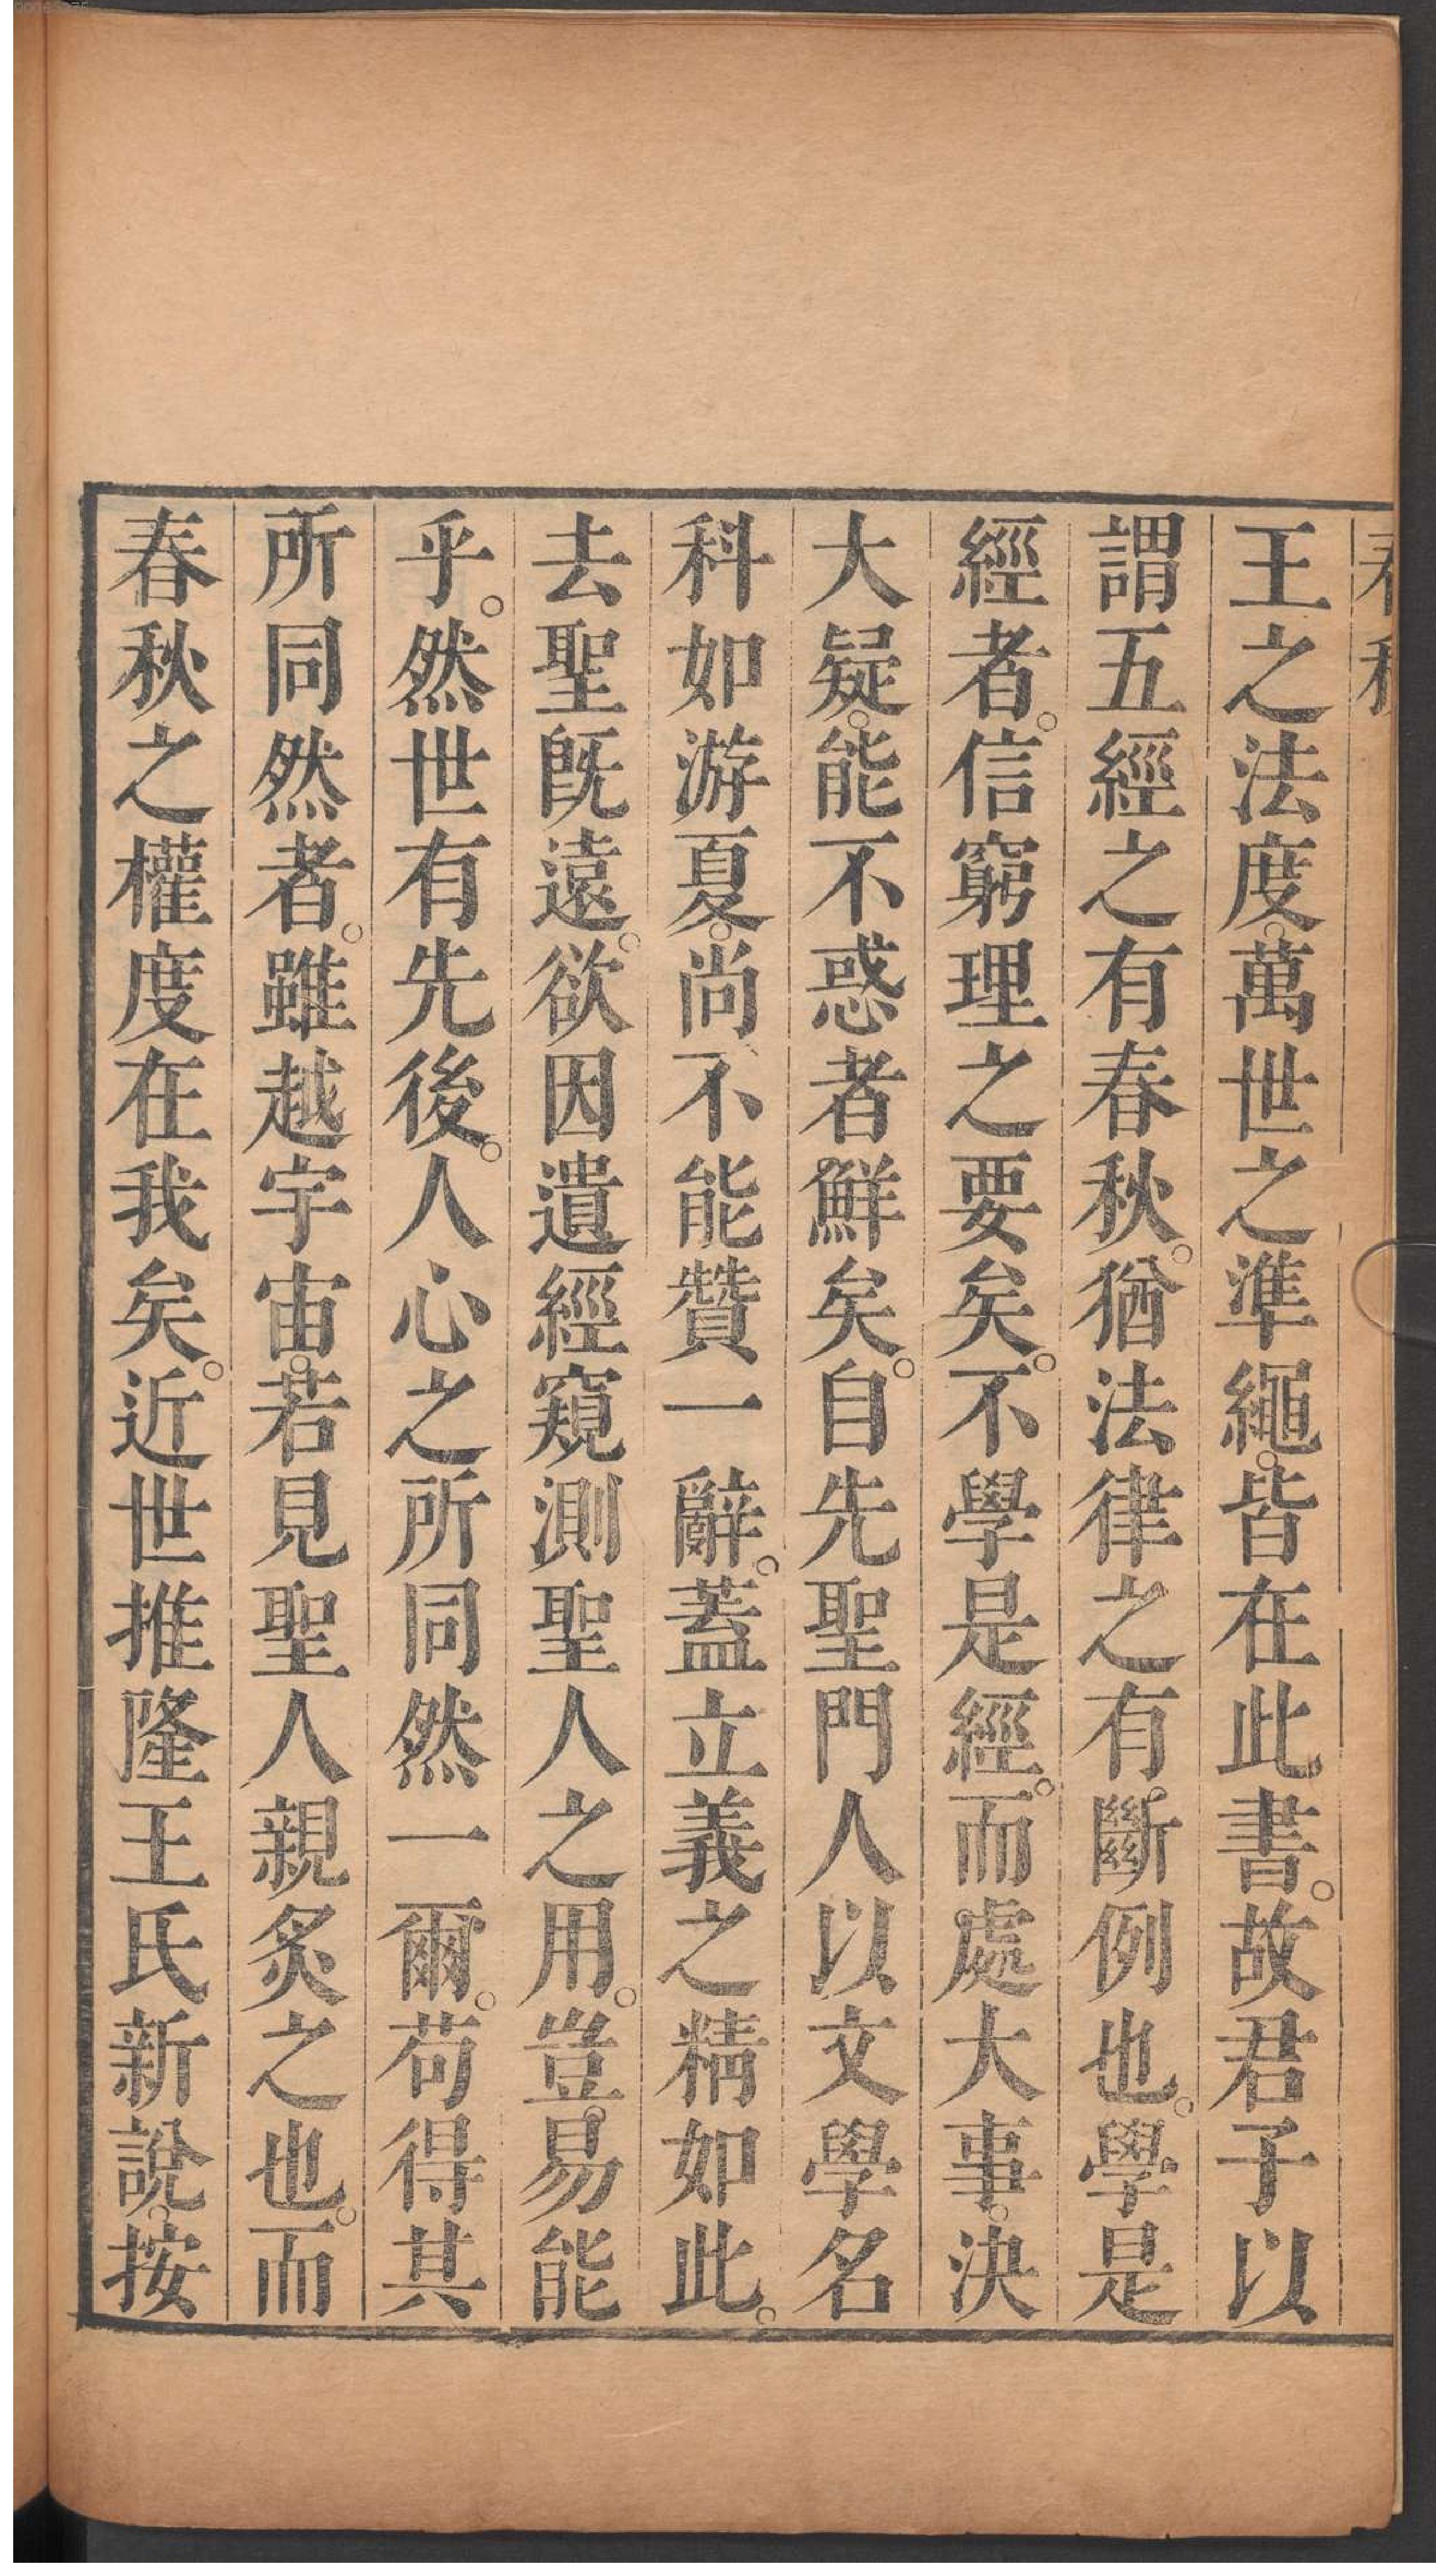 王之法度。萬世之準繩。皆在此書。故君子以
謂五經之有春秋。猶法律之有斷例也。學是
經者。信窮理之要矣。不學是經。而處大事。決
大疑。能不惑者鮮矣。自先聖門人以文學名
科如游夏。尚不能贊一辭。蓋立義之精如此。
去聖旣遠。欲因遺經窺測聖人之用。豈易能
乎。然世有先後。人心之所同然一爾。苟得其
所同然者。雖越宇宙。若見聖人親炙之也。而
春秋之權度在我矣。近世推隆王氏新說。按